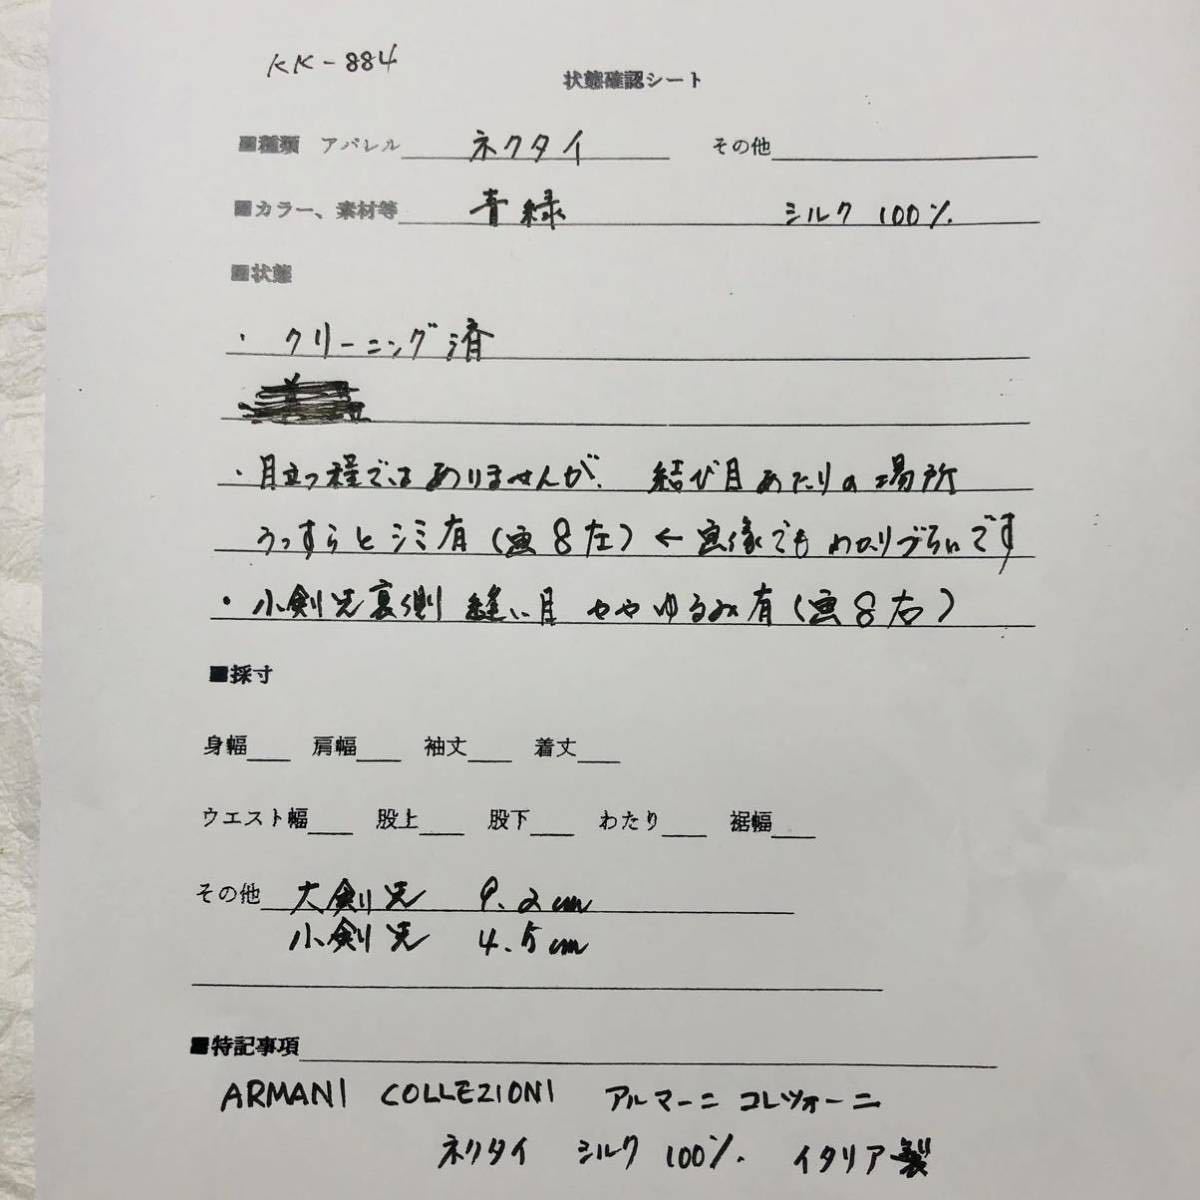 KK-884
状態確認シート
■種類 アパレル ネクタイ その他
■カラー、素材等 青緑 シルク 100%
■状態
・クリーニング済
・目立つ程ではありませんが、結び目あたりの場所
うっすらとシミ有(画8左)←画像でもわかりづらいです
・小剣先裏側 縫い目 ややゆるみ有(画8右)
■採寸
身幅 肩幅 袖丈 着丈
ウエスト幅 股上 股下 わたり 裾幅
その他 大剣先 9.2cm
小剣先 4.5cm
■特記事項
ARMANI COLLEZIONI アルマーニ コレツォーニ
ネクタイ シルク 100% イタリア製